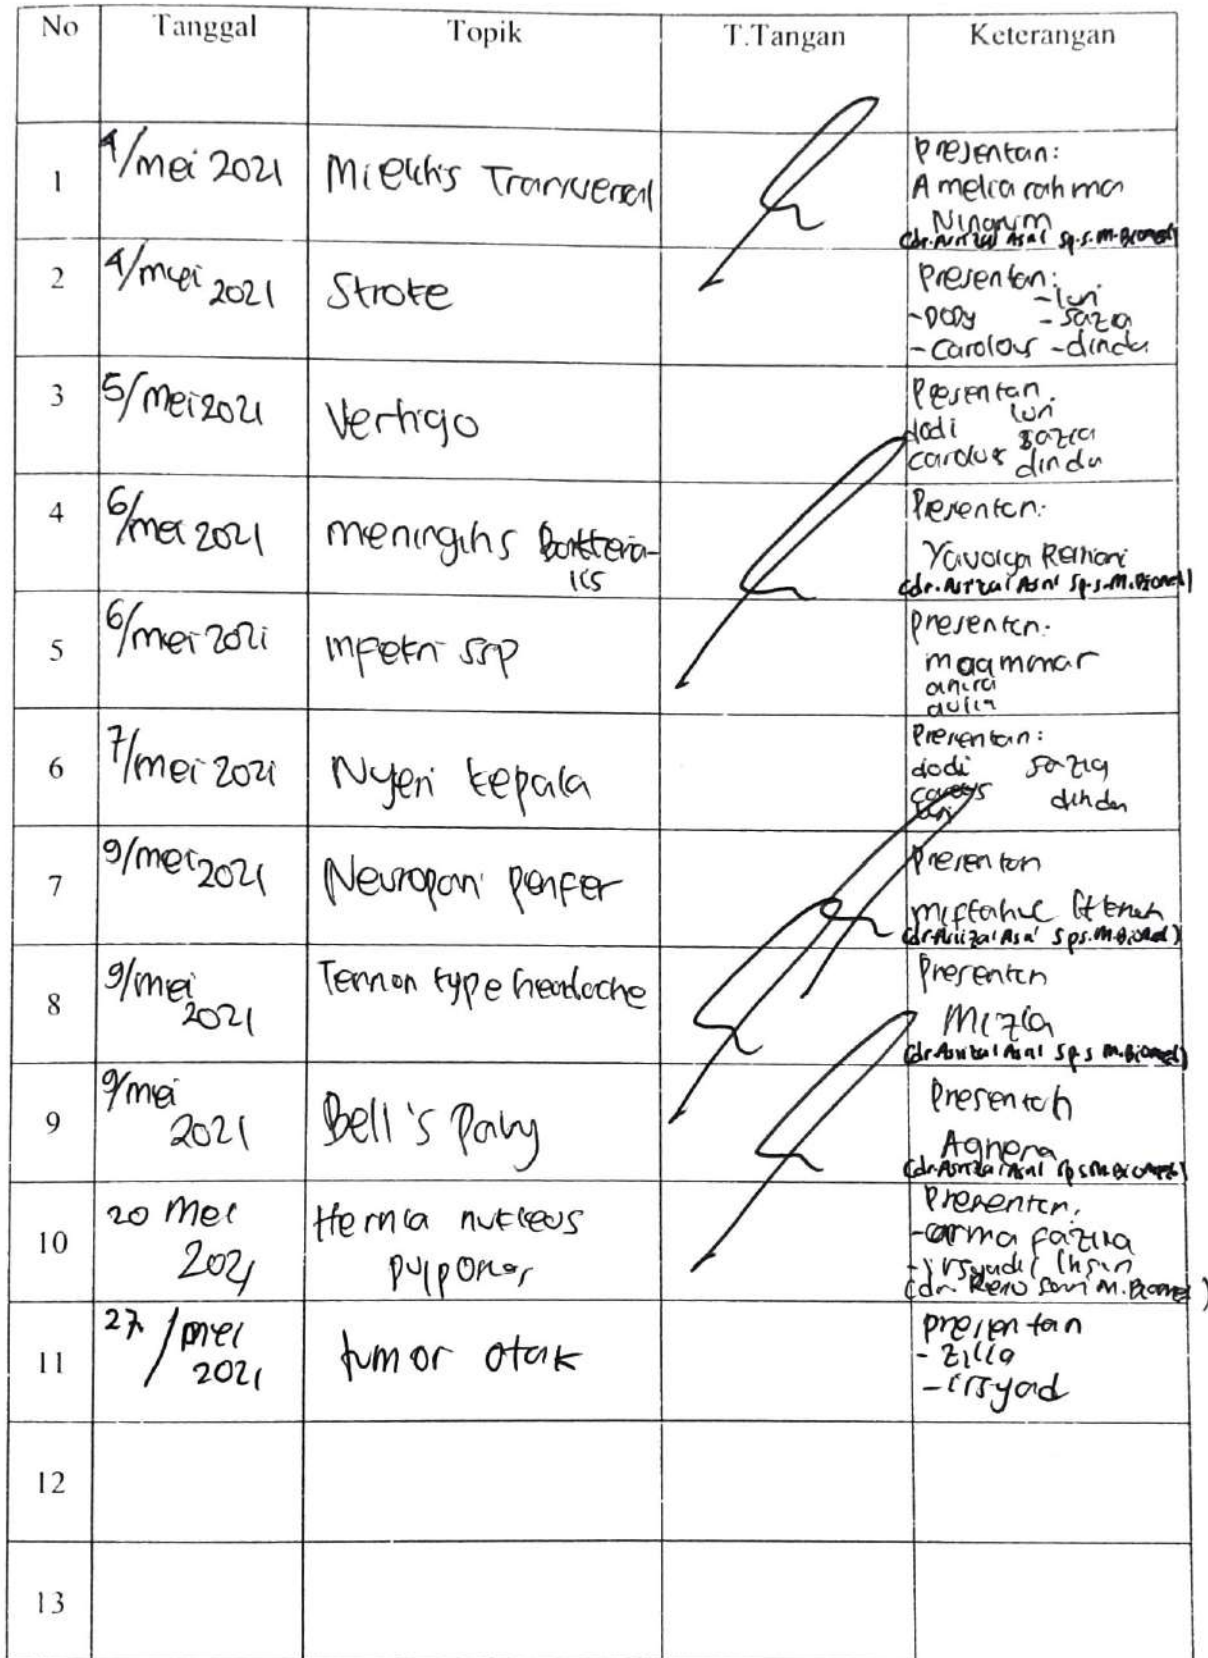 No Tanggal Topik T.Tangan Keterangan
1 4/mei 2021 Mielitis Tranversal presentan:
Amelia rahma
Ningrum
(dr. Asrizal Asni Sp.s.M.Biomed)
2 4/mei 2021 Stroke Presentan:
-luri
-Dody -sazia
-Carolous -dinda
3 5/mei 2021 Vertigo Presentan.
dodi luri
sazia
carolus dinda
4 6/mei 2021 meningitis
Presentan:
(dr. Asrizal Asni Sp.s.M.Biomed)
5 6/mei 2021 infeksi ssp presentan:
maammar
anira
aulia
6 7/mei 2021 Nyeri kepala Presentan:
dodi sazia
dinda
luri
7 9/mei 2021 Neuropari perifer Presentan
miftahul
(dr.Asrizal Asni Sps.M.Biomed)
8 9/mei 2021 Tension type headache Presentan
Mizla
(dr.Asrizal Asni Sps M.Biomed)
9 9/mei 2021 Bell's Palsy Presentan
(dr.Asrizal Asni Sps M.Biomed)
10 20 Mei 2021 Hernia nukleus
pulposus
Presentan:
-arma fazira
-irsyadil Ihsan
(dr. Reno Sari M.Biomed)
11 27/mei 2021 tumor otak presentan
- zilla
- irsyad
12
13